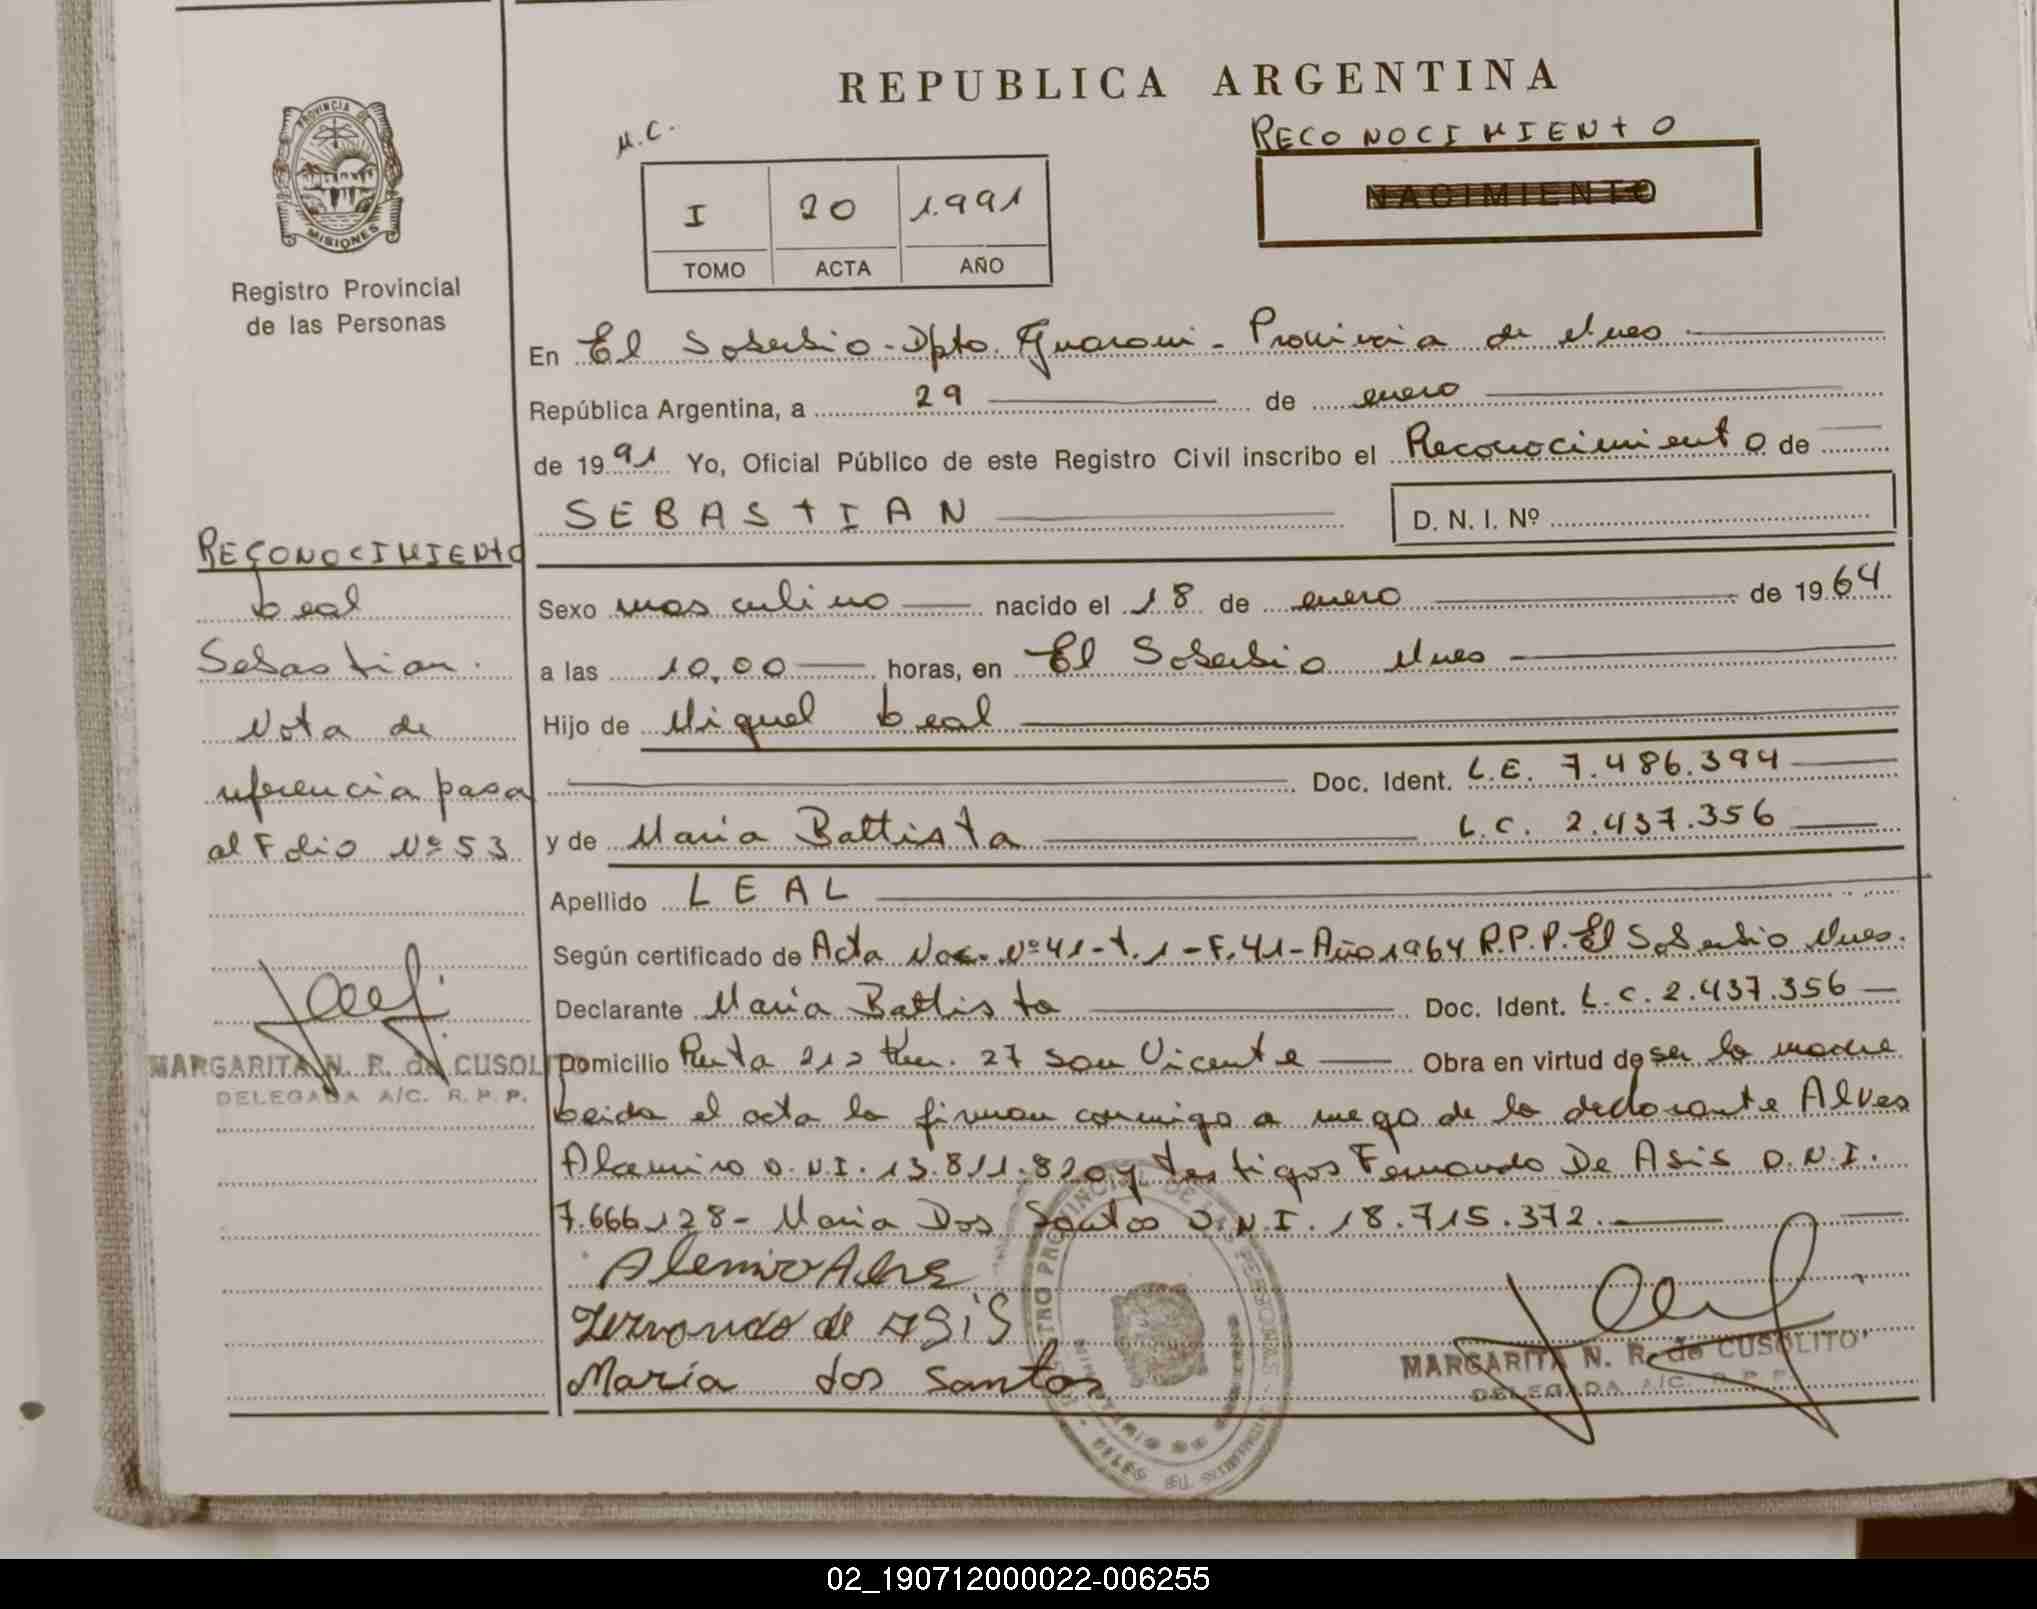 REPUBLICA ARGENTINA
PROVINCIA DE
MISIONES
Registro Provincial
de las Personas
M.C.
I 20 1.991
TOMO ACTA AÑO
RECONOCIMIENTO
NACIMIENTO
En El Soberbio - Dpto. Guarani - Provincia de Mnes
República Argentina, a 29 de enero
de 1991 Yo, Oficial Público de este Registro Civil inscribo el Reconocimiento de
SEBASTIAN D. N. I. Nº
Sexo masculino nacido el 18 de enero de 1964
a las 10,00 horas, en El Soberbio Mnes
Hijo de Miguel Leal
Doc. Ident. L.E. 7.486.394
y de Maria Battista L.C. 2.437.356
Apellido LEAL
Según certificado de Acta Nac. Nº 41 - t. 1 - F. 41 - Año 1964 R.P.P. El Soberbio Mnes.
Declarante Maria Battista Doc. Ident. L.C. 2.437.356
Domicilio Ruta 212 Km. 27 San Vicente Obra en virtud de ser la madre
Leida el acta la firman conmigo a ruego de la declarante Alves
Alamiro D.N.I. 13.811.820 y testigos Fernando De Asis D.N.I.
7.666.128 - Maria Dos Santos D.N.I. 18.715.372.
Fernando de ASiS
María dos Santos
MARGARITA N. R. de CUSOLITO
DELEGADA A/C. R. P. P.
RECONOCIMIENTO
Leal
Sebastian.
Nota de
referencia pasa
al Folio Nº 53
MARGARITA N. R. de CUSOLITO
DELEGADA A/C. R. P. P.
02_190712000022-006255